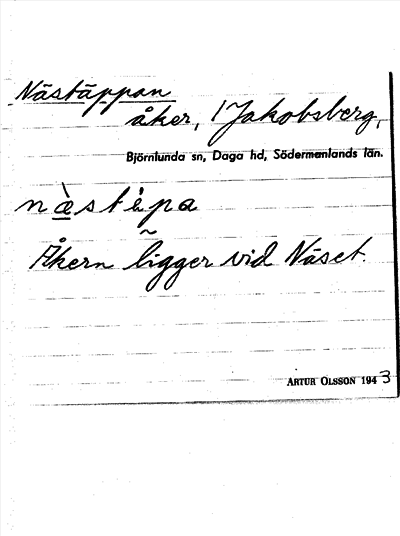 Nästäppan
åker, 1 Jakobsberg,
Björnlunda sn, Daga hd, Södermanlands län.
næ̀stɛ̀pa
Åkern ligger vid Näset.
ARTUR OLSSON 1943